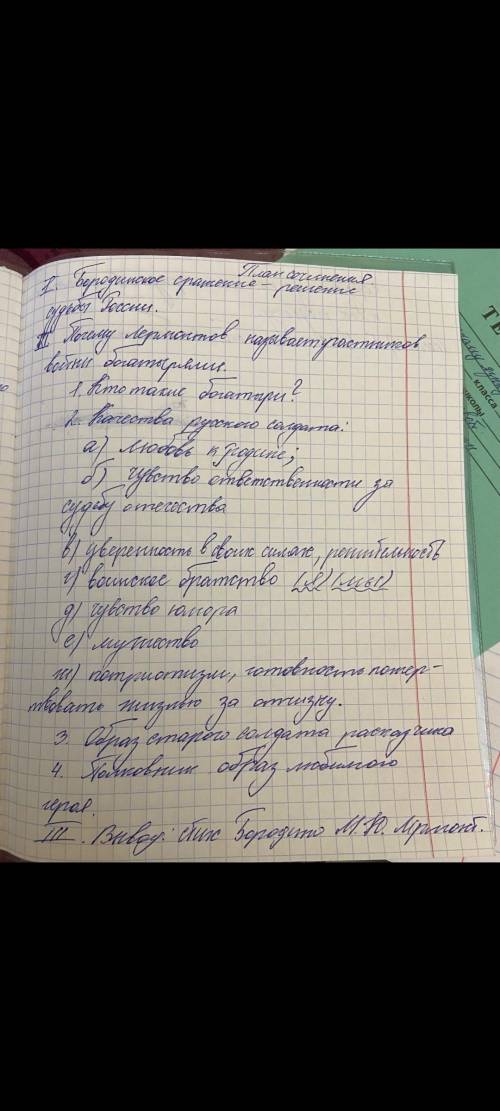 План сочинения
I. Бородинское сражение – решение
судьбы России.
II Почему Лермонтов называет участников
войны богатырями.
1. Кто такие богатыри?
2. Качества русского солдата:
а) любовь к Родине;
б) чувство ответственности за
судьбу отечества
в) уверенность в своих силах, решительность
г) воинское братство (Я) (мы)
д) чувство юмора
е) мужество
ж) патриотизм, готовность пожер-
твовать жизнью за отчизну.
3. Образ старого солдата расказчика
4. Полковник образ любимого
героя.
III. Вывод: Бородино М. Ю.
ТЕ
класса
школы